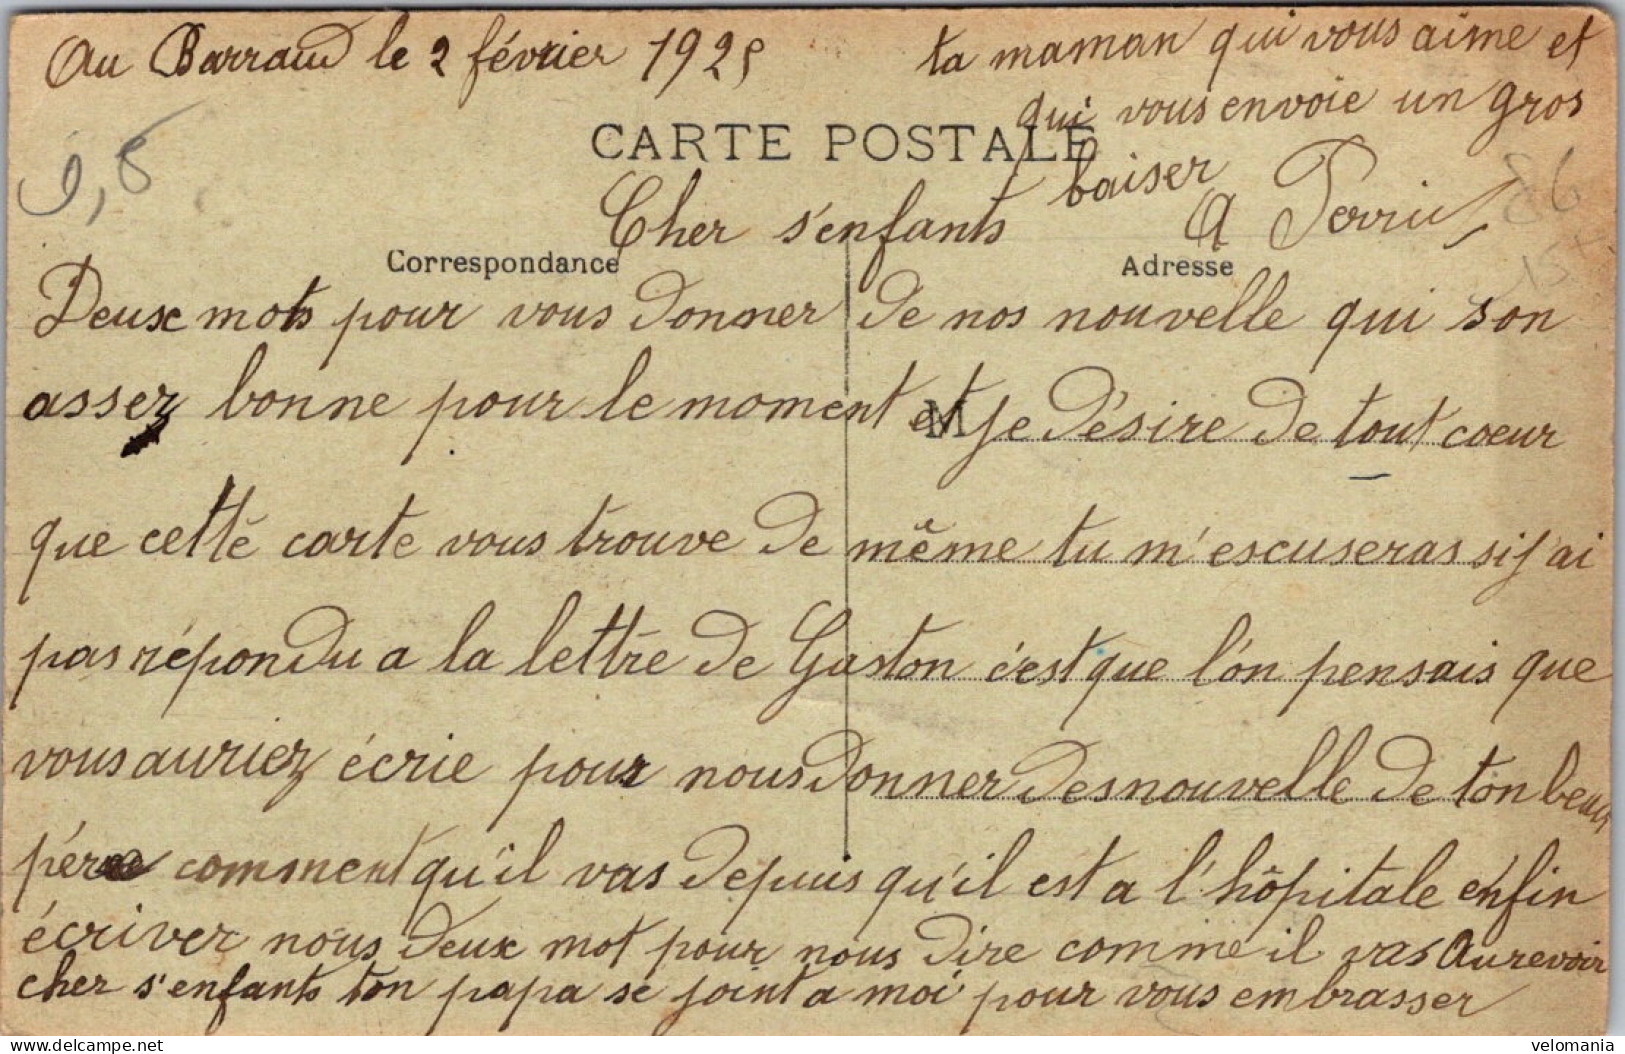 Au Barraud le 2 février 1925
CARTE POSTALE
Correspondance
Adresse
M
Cher s'enfants
Deuse mots pour vous donner de nos nouvelle qui son
assez bonne pour le moment et je désire de tout coeur
que cette carte vous trouve de même tu m'escuseras si j'ai
pas répondu a la lettre de Gaston c'est que l'on pensais que
vous auriez écrie pour nous donner des nouvelle de ton beau
père comment qu'il vas depuis qu'il est a l'hôpitale enfin
écriver nous deux mot pour nous dire comme il vas Au revoir
cher s'enfants ton papa se joint a moi pour vous embrasser
ta maman qui vous aime et
qui vous envoie un gros
baiser
A
86
velomania